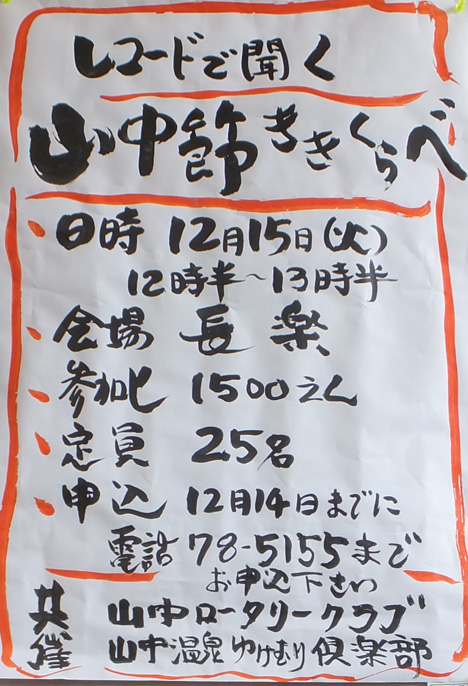 レコードで聞く
山中節ききくらべ
日時 12月15日(火)
12時半～13時半
会場 長楽
参加ヒ 1500えん
定員 25名
申込 12月14日までに
電話 78-5155まで
お申込下さい
共催 山中ロータリークラブ
山中温泉ゆけむり倶楽部